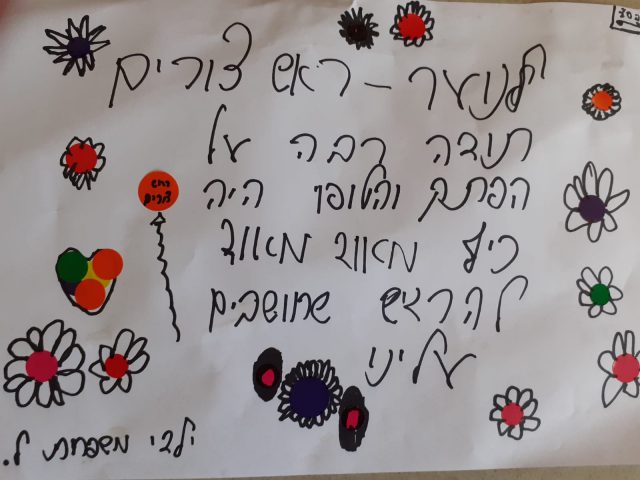 לנוער – ראש צורים
תודה רבה על
הפתק היה
כיף מאוד מאוד
להרגיש שחושבים
עלינו
ראש
צורים
ילדי משפחת ל.